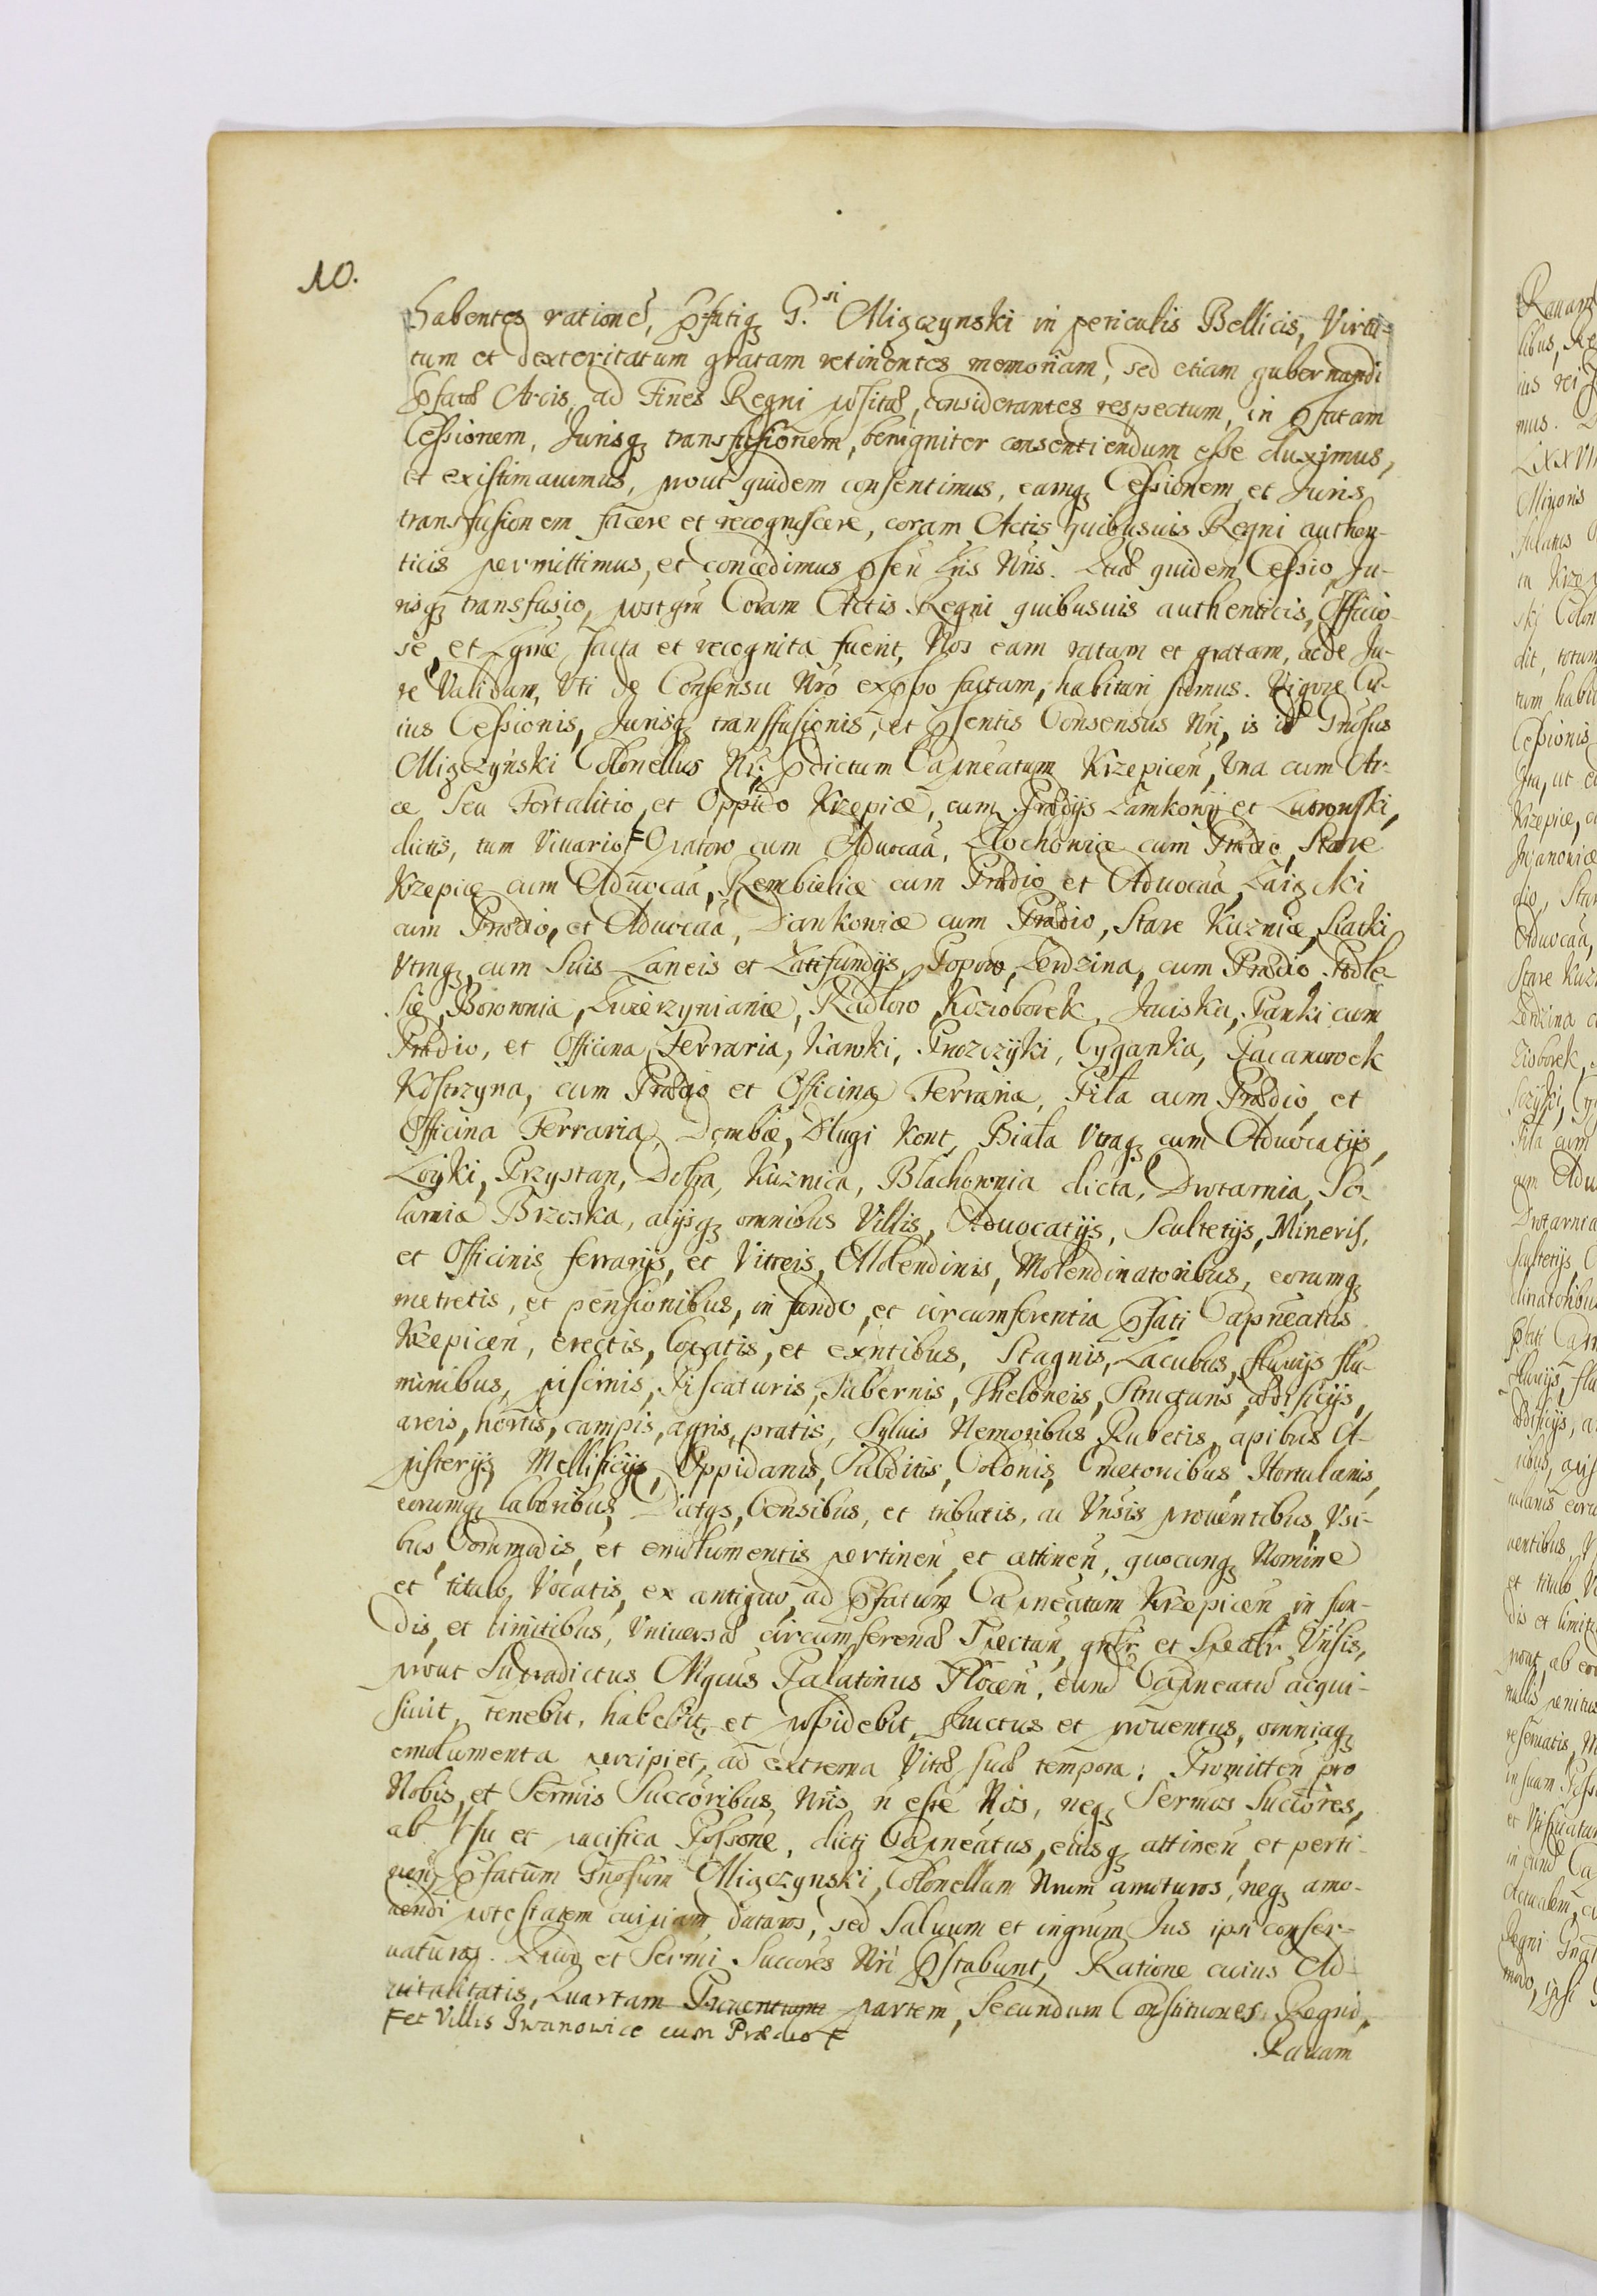 10.
Habentes rationē, Pfatiq; G.si Miączynski in periculis Bellicis, Virtu-
tum et dexteritatum gratam retinentes memoriam, sed etiam gubernandi
Pfatæ Arcis, ad Fines Regni positæ, considerantes respectum, in Pfatam
Cessionem, Jurisq; transfusionem, benigniter consentiendum esse duximus,
et existimavimus, prout quidem consentimus, eamq; Cessionem et Juris
transfusionem facere et recognoscere, coram Actis quibusuis Regni authen-
ticis permittimus, et concedimus Psen̄ Lris Nris. Quæ quidem Cessio, Ju-
risq; transfusio, postqm Coram Actis Regni quibusuis authenticis, Officio-
se, et Lgme facta et recognita fuerit, Nos eam ratam et gratam, ac de Ju-
re Validam, Vti de Consensu Nro expsso factam, habituri sumus. Vigore Cu-
ius Cessionis, Jurisq; transfusionis, et Psentis Consensus Nri, is id Gnosus
Miączynski Colonellus Nr; Pdictum Capneatum Krzepicen̄, Vna cum Ar-
ce Seu Fortalitio, et Oppido Krzepice, cum Prædijs Zamkowy et Kutowski,
dictis, tum Viuario F Opatow cum Aduocaa, Złochowice cum Prædio, Stare
Krzepice cum Aduocaa, Rembielice cum Prædio et Aduocaa, Zaiączki
cum Prædio, et Aduocaa, Dankowice cum Prædio, Stare Kuznice, Kacki
Vtrnq; cum Suis Laneis et Latifundijs, Popow, Lendzina, cum Prædio Podle-
sie, Borownia, Zwierzynianie, Radłow, Kozioborek, Jaciska, Panki cum
Prædio, et Officina Ferraria, Kawki, Proszczyki, Cyganka, Pacanowek
Kostrzyna, cum Prædio et Officina Ferraria, Piła cum Prædio, et
Officina Ferraria, Dembie, Dlugi Kont, Biała Vtraq; cum Aduocatijs,
Łoyki, Przystan, Dolna, Kuznica, Blachownia dicta, Drotarnia, So-
larnia Brzoska, alijsq; omnibus Villis, Aduocatijs, Scultetijs, Mineris,
et Officinis ferrarijs, et Vitreis, Molendinis, Molendinatoribus, eorumq;
metretis, et pensionibus, in fundo, et circumferentia Pfati Capneatus
Krzepicen̄, erectis, locatis, et exntibus, Stagnis, Lacubus, fluuijs flu-
minibus, piscinis, Piscaturis, Tabernis, Theloneis, Structuris, ædificijs,
areis, hortis, campis, agris, pratis, Syluis Nemoribus Rubetis, apibus A-
pisterijs, Mellificijs, Oppidanis, Subditis, Colonis, Cmetonibus Hortulanis,
eorumq; laboribus, Datijs, Censibus, et tributis, ac Vnsis prouentibus, Vsi-
bus, Commodis, et emolumentis pertinen̄, et attinen̄, quocunq; Nomine
et titulo, Vocatis, ex antiquo, ad Pfatum Capneatum Krzepicen̄, in fun-
dis, et limitibus, Vniuersæ circumferenæ Spectan̄, gnlr et Spealr Vnsis,
prout Supradictus Mgcus Palatinus Plocen̄, eund Capneatū acqui-
siuit, tenebit, habebit, et possidebit, fructus et prouentus, omniaq;
emolumenta percipiet, ad extrema Vitæ suæ tempora: Promitten̄ pro
Nobis, et Sermis Succoribus, Nris n̄ esse Nos, neq; Sermos Succores,
ab Vsu et pacifica Possone, dicti Capneatus, eiusq; attinen̄ et perti-
nen̄, Pfatum Gnosum Miączynski, Colonellum Nrum amoturos, neq; amo-
uendi potestatem cuipiam daturos, sed Saluum et ingrum Jus ipsi conser-
uaturos. Quod et Sermi Succores Nri Pstabunt, Ratione cuius Ad-
uitalitatis, Quartam Prouentuum partem, Secundum Constituones Regni,
F et Villis Iwanowice cum Prædio F
Rauam